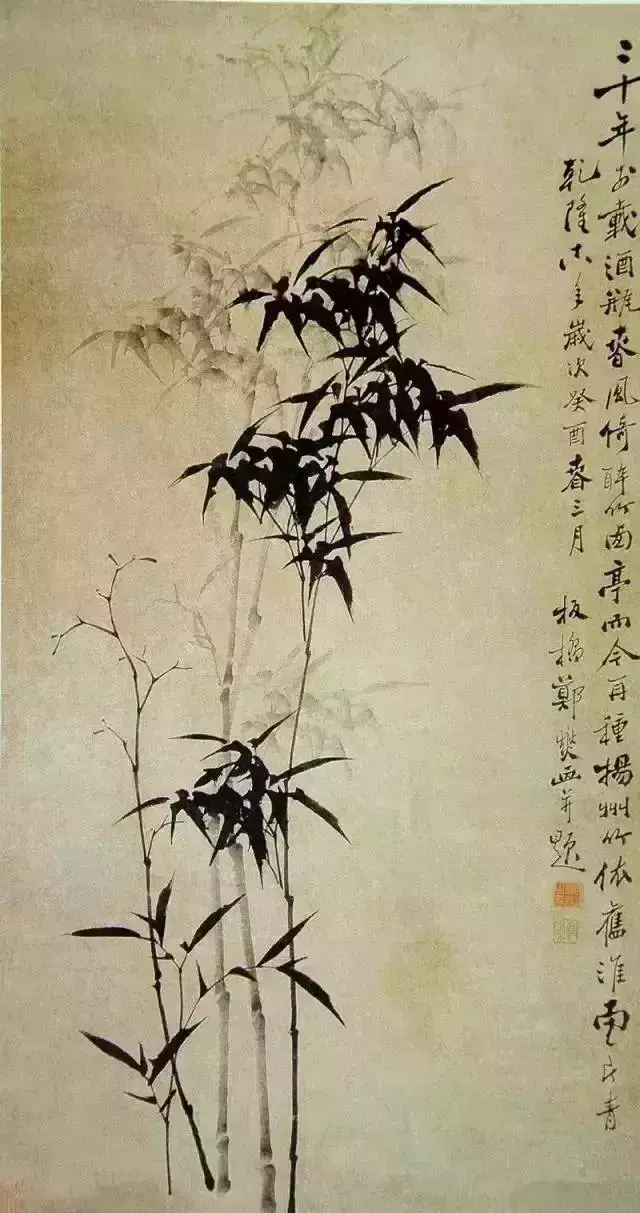 三十年前載酒瓶春風倚醉竹西亭而今再種揚州竹依舊淮南一片青
乾隆十八年歲次癸酉春三月 板橋鄭燮画并題